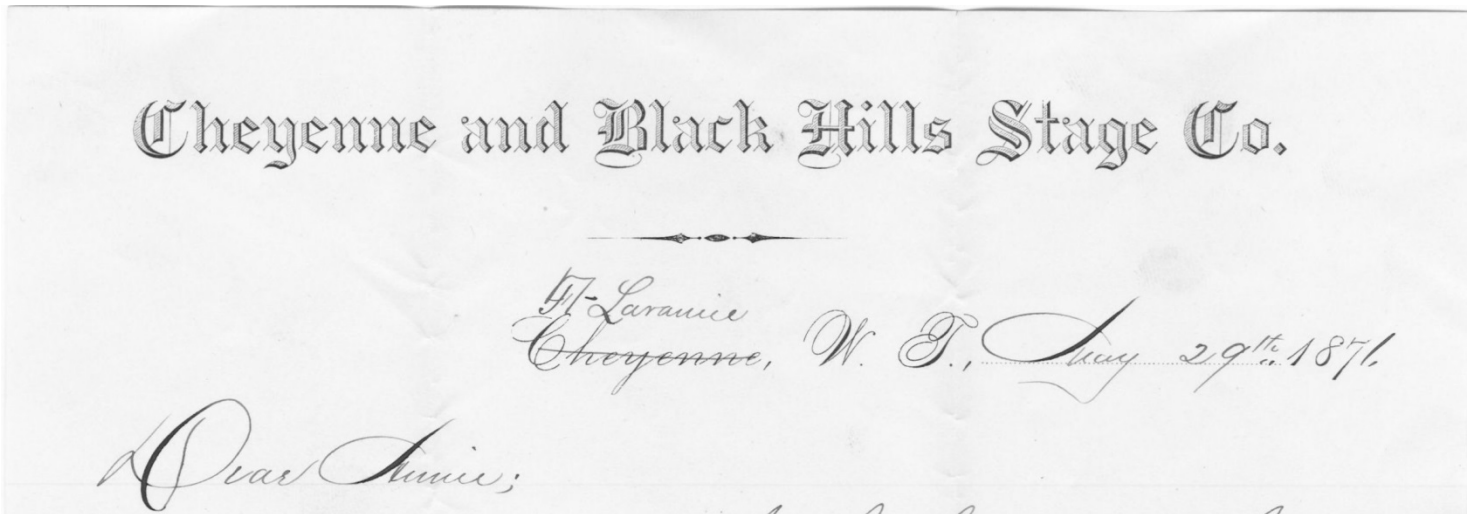 Cheyenne and Black Hills Stage Co.
Ft- Laramie
Cheyenne, W. T., May 29th 1876.
Dear Annie;